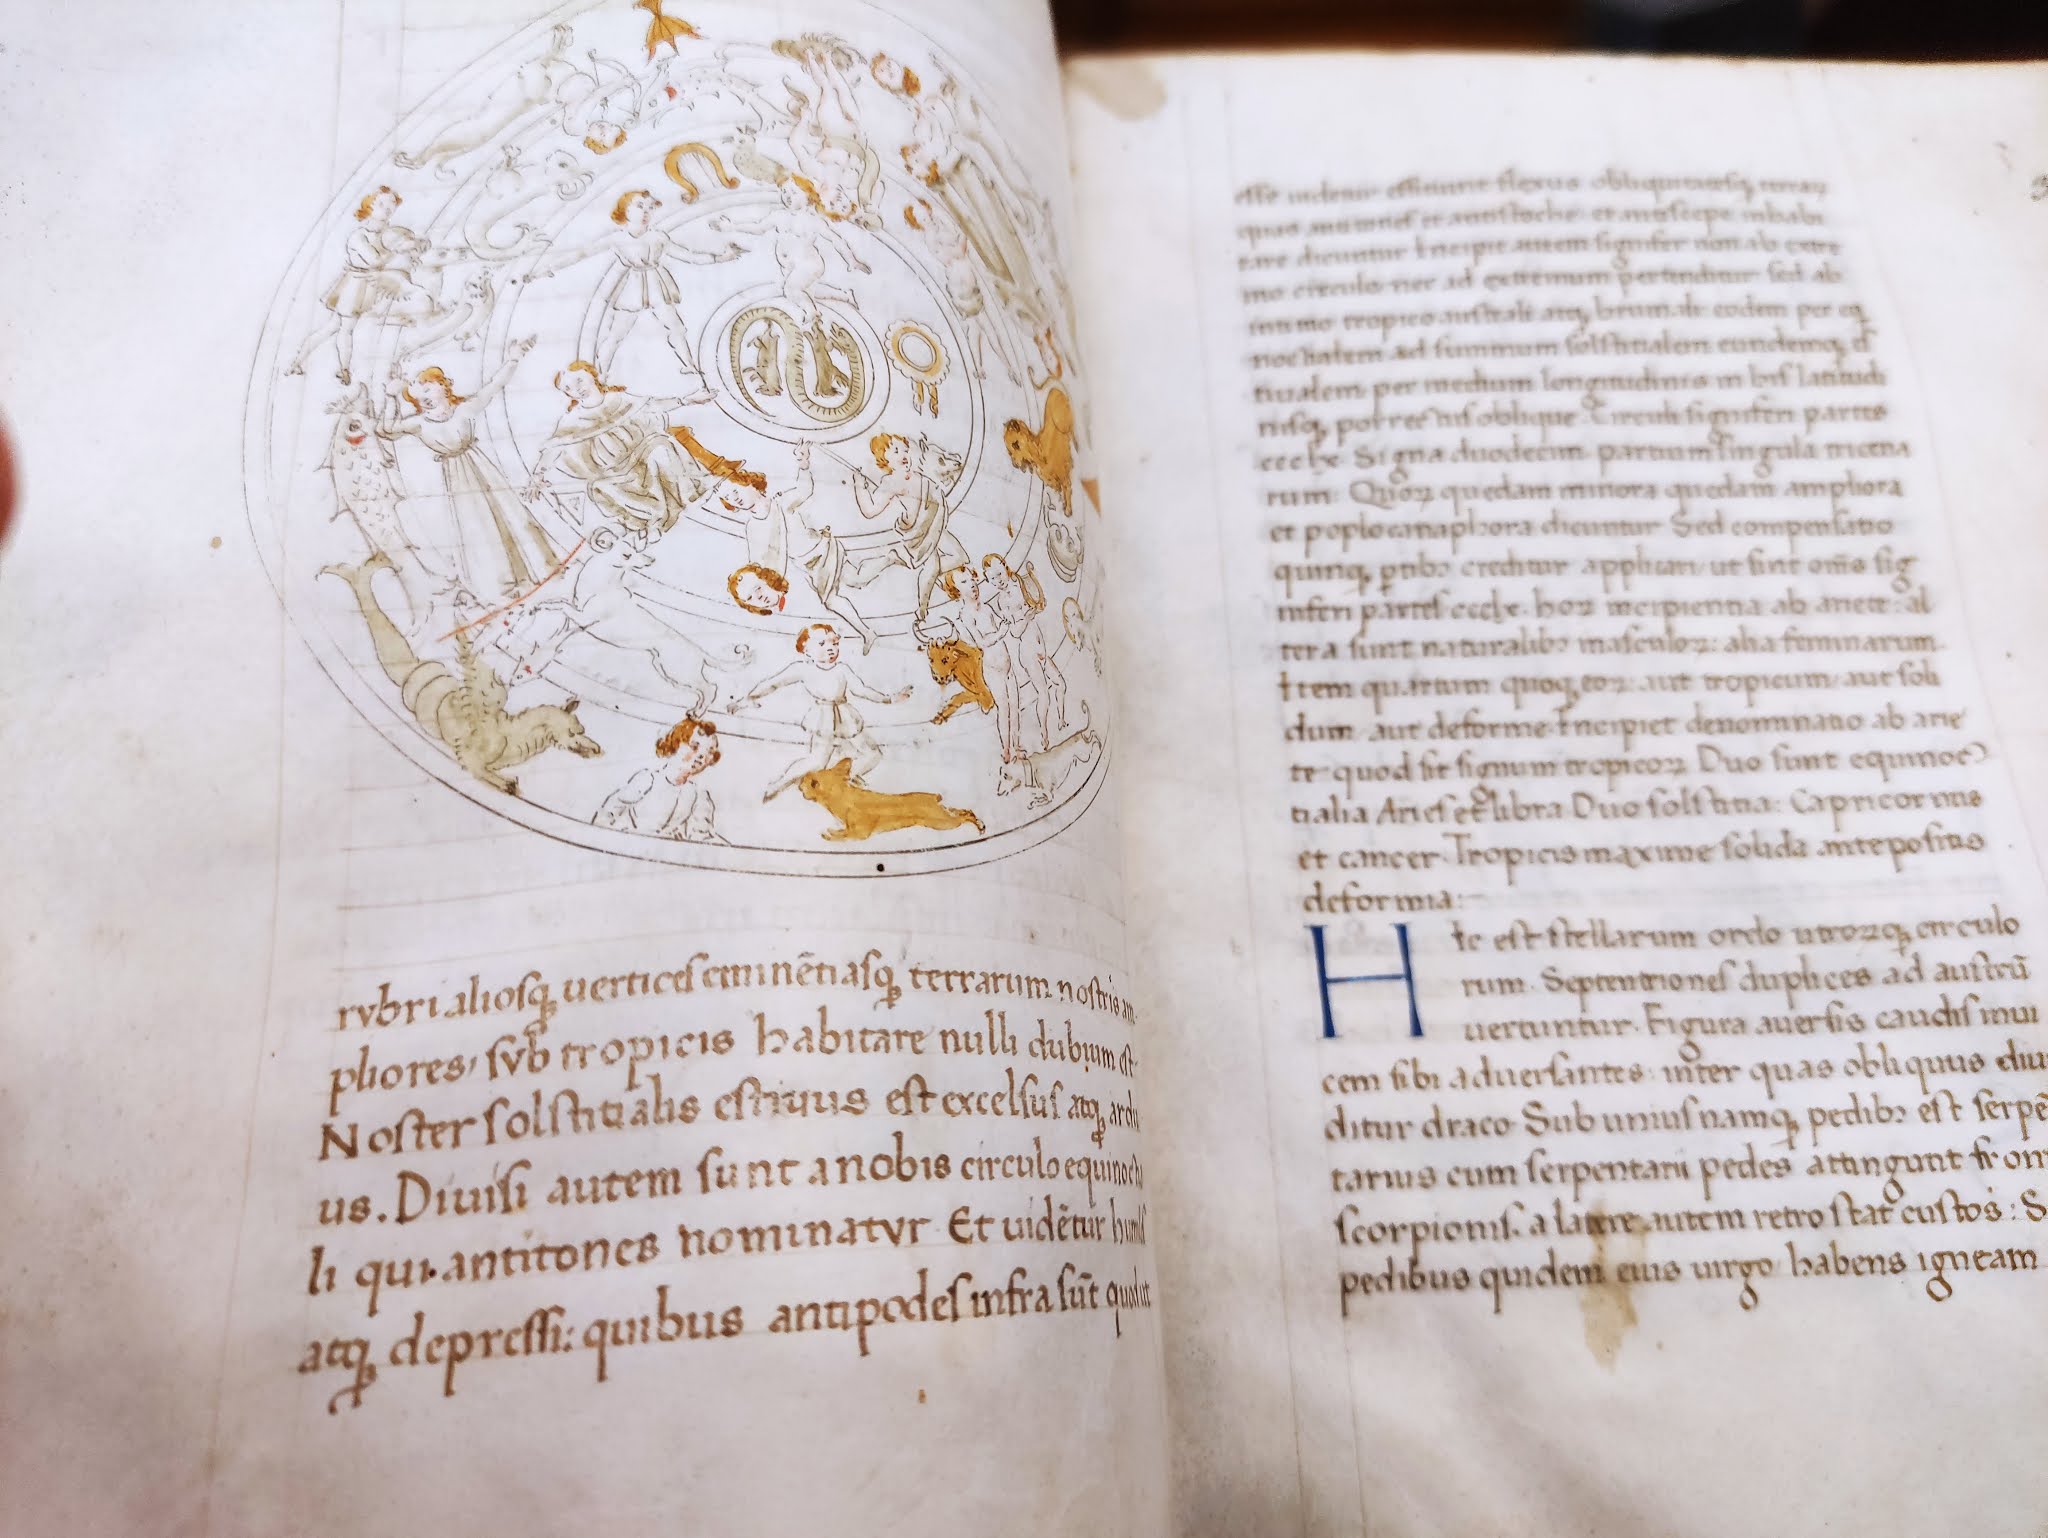 rvbri aliosq; uertices eminētiasq; terrarum nostris am
phores, svb tropicis habitare nulli dubium est.
Noster solstitialis estiuus est excelsus atq; ardu
us. Diuisi autem sunt a nobis circulo equinoctia
li qui antitones nominatvr. Et uidētur humiles
atq; depressi: quibus antipodes infra sūt quod ut
esse uidetur efficiunt flexus obliquitatesq; terrarum
et antistoche: et
tare dicuntur Incipit autem signifer non ab extre
mo circulo nec ad extremum pertenditur sed ab
intimo tropico australi atq; brumali: eodem per eq
noctialem ad summum solstitialem eundemq; es
tiualem per medium longitudinis in his latitudi
nisq; porrectus oblique. Circuli signiferi partes
ccclx. Signa duodecim partium singula tricena
rum: Quoꝝ quedam minora quedam amphora
et dicuntur Sed compensatio
quinq; ꝑtibꝫ creditur applicari: ut sint om̄s sig
niferi partes ccclx. hoꝝ incipientia ab ariete: al
tera sunt naturalibꝫ masculoꝝ: alia feminarum.
Item quartum quoq; eoꝝ: aut tropicum: aut soli
dum: aut deforme. Incipiet denominatio ab arie
te quod sit signum tropicoꝝ Duo sunt equinoc
tialia Aries et libra Duo solstitia: Capricornus
et cancer. Tropicis maxime solida antepositis
deformia:
Hic est stellarum ordo utroꝝq; circulo
rum. Septentriones duplices ad austrū
uertuntur. Figura auersis caudis inui
cem sibi aduersantes: inter quas obliquus
ditur draco Sub unius namq; pedibꝫ est serpē
tarius cum serpentarii pedes attingunt
scorpionis. a latere autem retro stat custos: S
pedibus quidem eius uirgo habens igneam